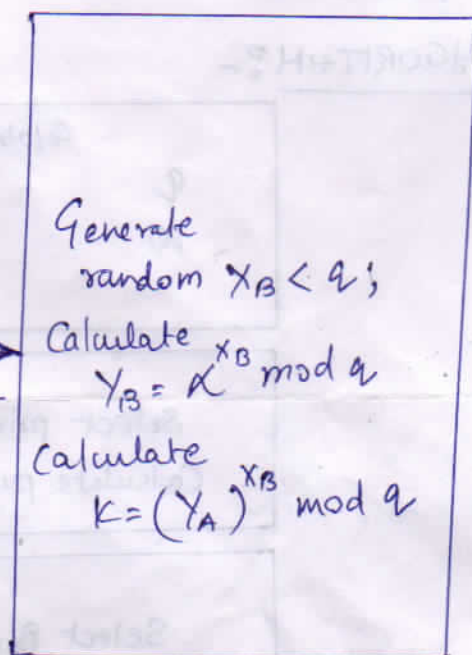 Generate
random X_B < q;
Calculate
Y_B = α^X_B mod q
Calculate
K = (Y_A)^X_B mod q